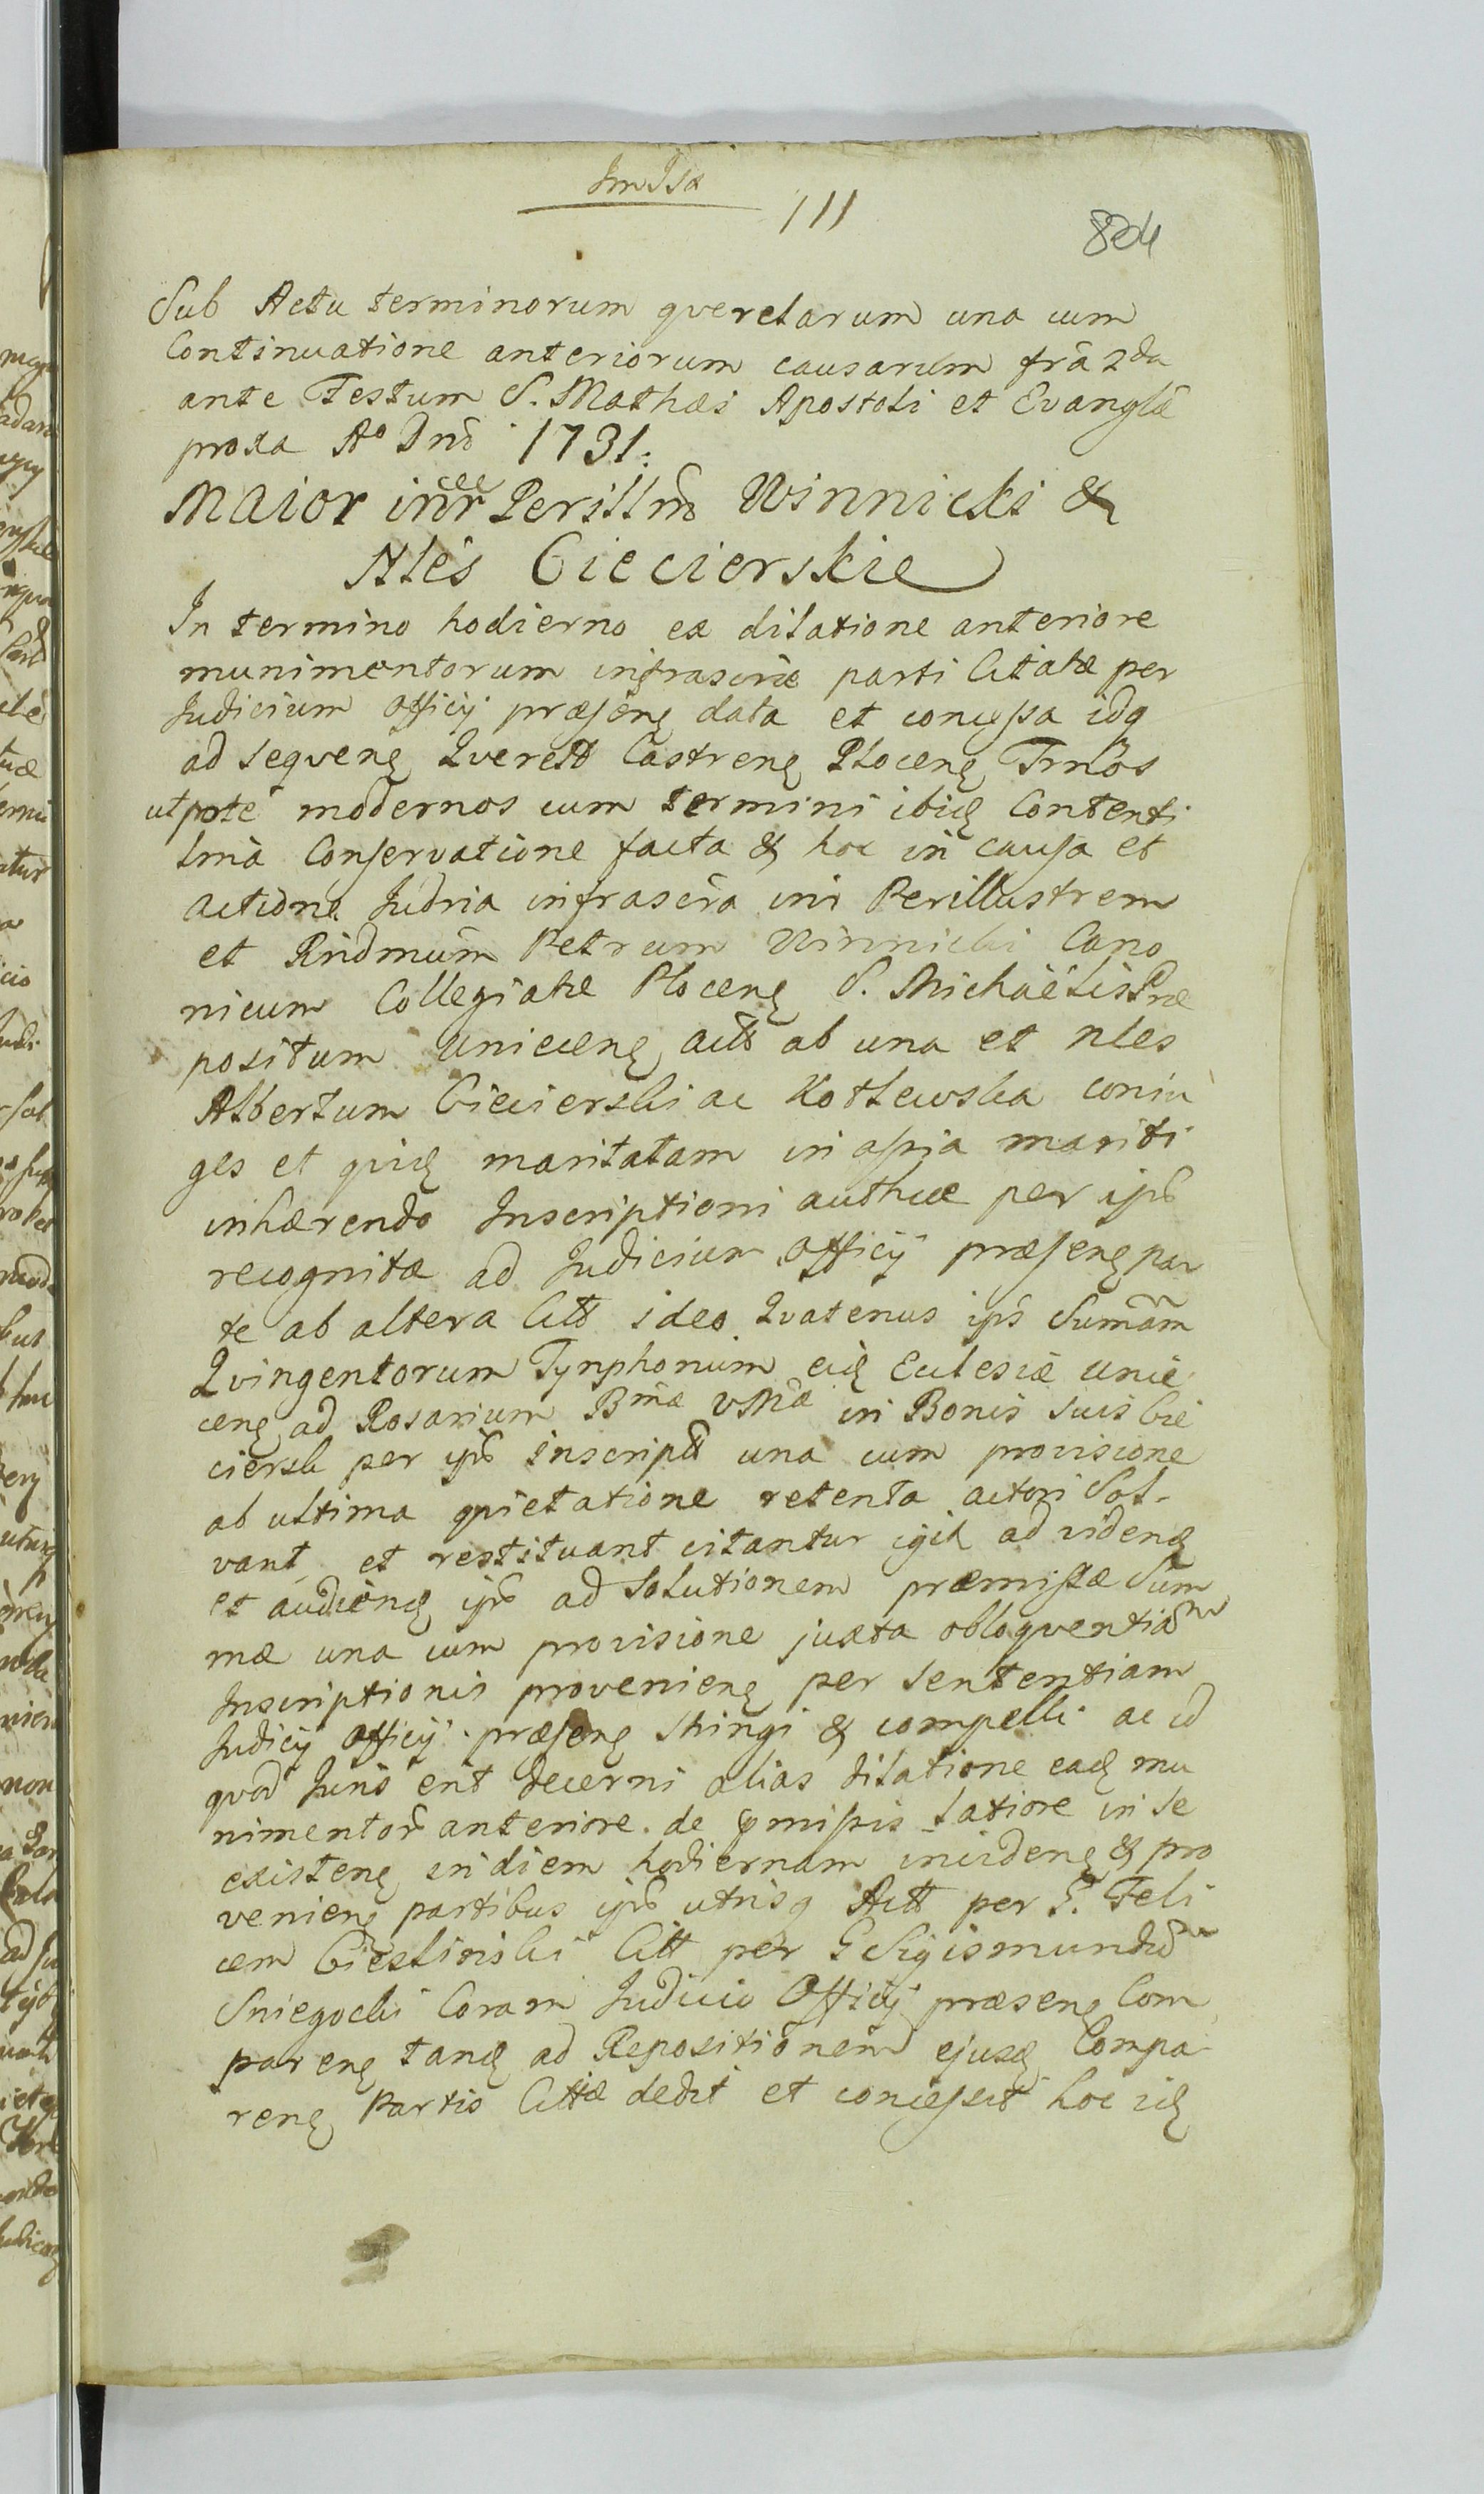 111
804
Sub Actu terminorum querelarum una cum
Continuatione anteriorum causarum fra 2da
ante Festum S. Mathæi Apostoli et Evanglæ
proxa A° Dni 1731.
Maior inrr Perillm Winnicki &
Nles Ciecierskie
In termino hodierno ex dilatione anteriore
munimentorum infrascræ parti Citatæ per
Judicium Officij præsenȩ data et concessa idq
ad sequenȩ Querell Castrenȩ Plocenȩ Trnos
utpote modernos cum termini ibiȩ Contenti
lma Conservatione facta & hoc in causa et
actione Judria infrascra inr Perillustrem
et Rndmum Petrum Winnicki Cano
nicum Collegiatæ Plocenȩ S. Michaëlis Præ
positum Uniecenȩ actt ab una et nles
Albertum Ciecierski ac Kotlewska coniu
ges et quiȩ maritatam in assia mariti
inhærendo Inscriptioni authcæ per ips
recognitæ ad Judicium Officij præsenȩ par
te ab altera Citt ideo Quatenus ips Summam
Quingentorum Tynphonum eiȩ Eclesiæ Unie
cenȩ ad Rosarium Bmæ VMæ in Bonis suis Cie
ciersk per ips inscriptt una cum provisione
ab ultima quietatione retenta actori Sol-
vant et restituant citantur igit ad videnȩ
et audienȩ ips ad Solutionem præmissæ Sum
mæ una cum provisione juxta obloquentiam
Inscriptionis provenienȩ per sententiam
Judicij Officij præsenȩ stringi & compelli ac id
quod Juris erit decerni alias dilatione eaȩ mu
nimentor anteriore de præmissis latiore in se
existenȩ in diem hodiernam incidenȩ & pro
venienȩ partibus ips utrisq Actt per G. Feli
cem Cieslinski Citt per G Sigismundum
Sniegocki Coram Judicio Officij præsenȩ Com
parenȩ tanȩ ad Repositionem ejusȩ Compa
renȩ Partis Cittæ dedit et concessit hoc iȩ